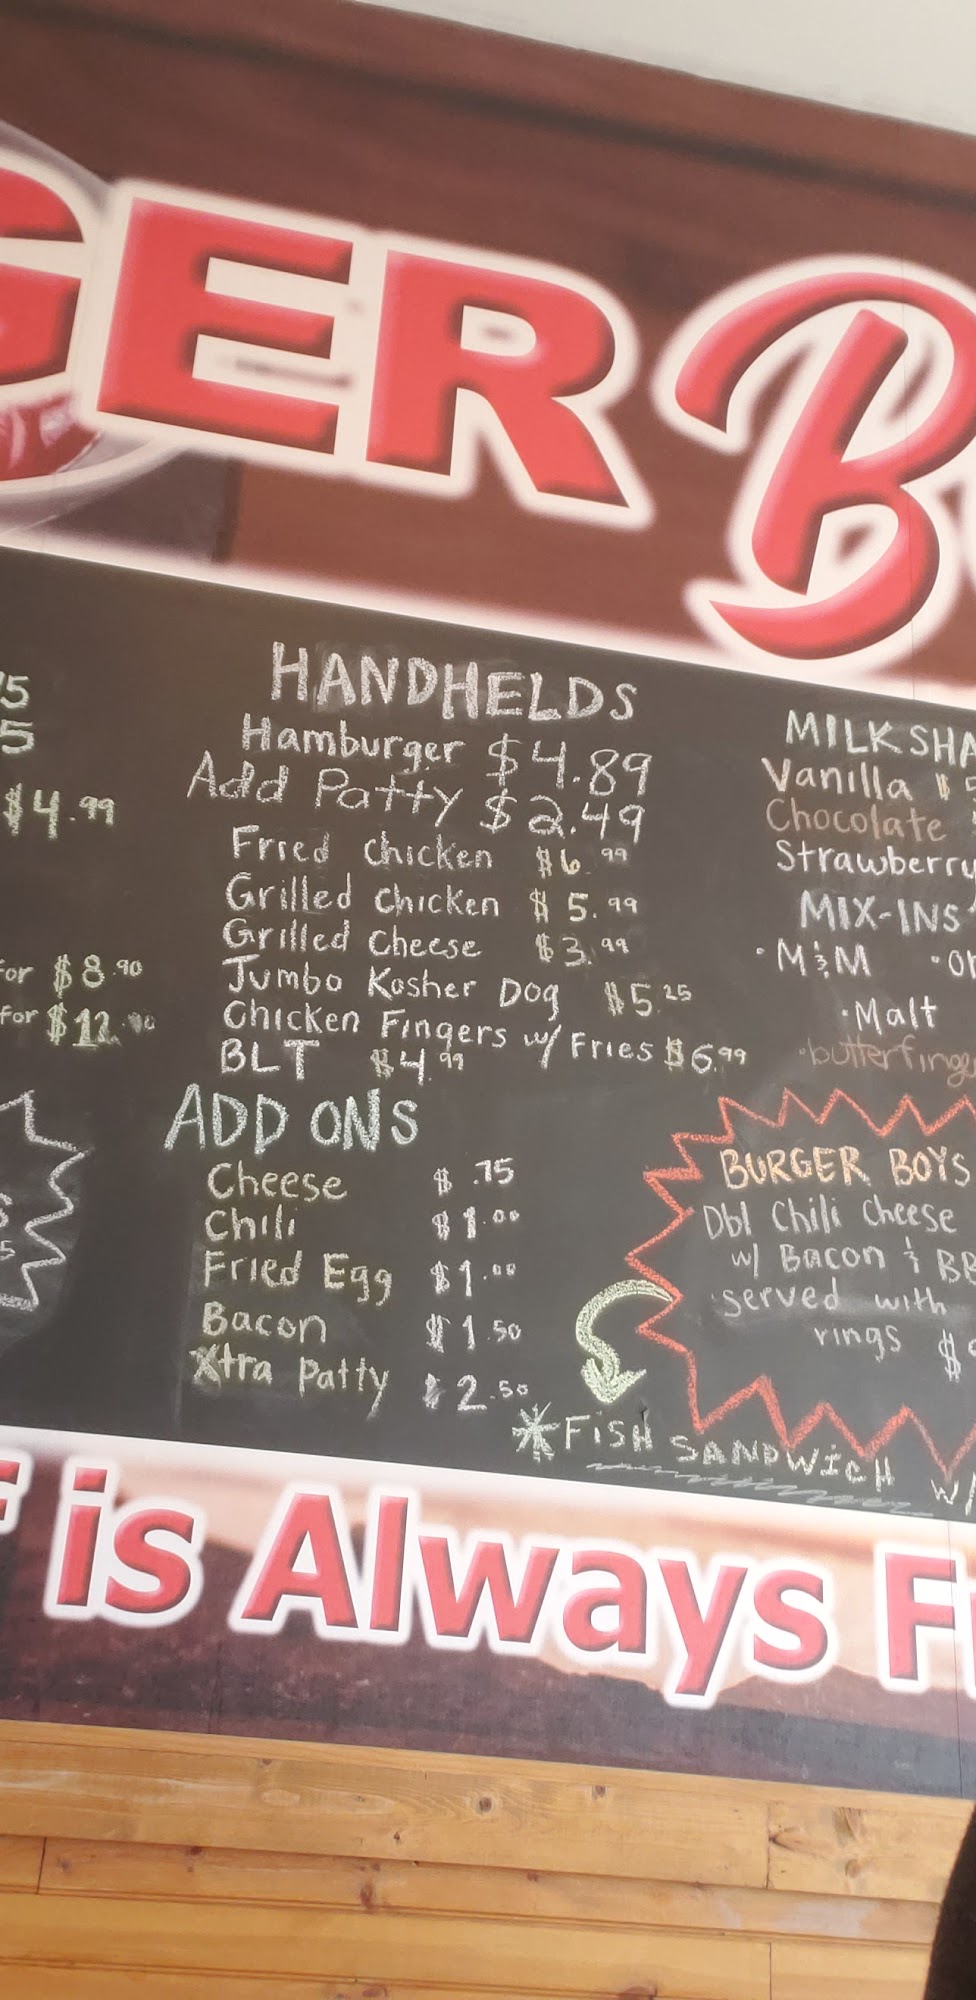 GER B
HANDHELDS
Hamburger $4.89
Add Patty $2.49
Fried Chicken $6.99
Grilled Chicken $5.99
Grilled Cheese $3.99
Jumbo Kosher Dog $5.25
Chicken Fingers w/ Fries $6.99
BLT $4.99
ADD ONS
Cheese $.75
Chili $1.00
Fried Egg $1.00
Bacon $1.50
Xtra Patty $2.50
5
5
$4.99
for $8.90
for $12.90
MILKSHA
Vanilla $
Chocolate
Strawberry
MIX-INS
·M&M
·Malt
·butterfinge
BURGER BOYS
Dbl Chili Cheese
w/ Bacon & BB
served with
rings $
*FiSH SANDWiCH W/
is Always F